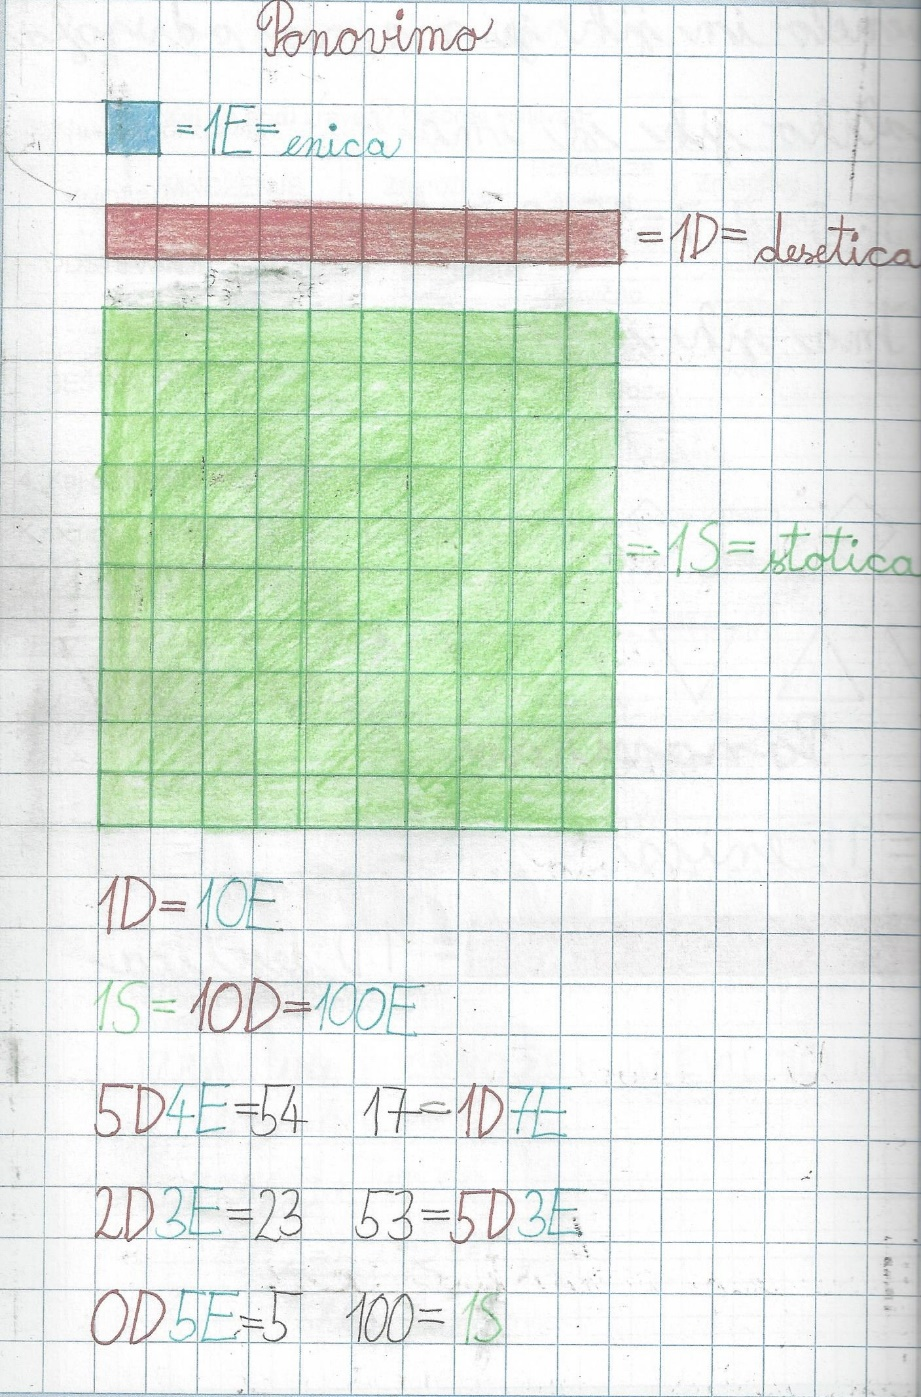 Ponovimo
= 1E = enica
= 1D = desetica
= 1S = stotica
1D = 10E
1S = 10D = 100E
5D4E = 54 17 = 1D7E
2D3E = 23 53 = 5D3E
0D5E = 5 100 = 1S